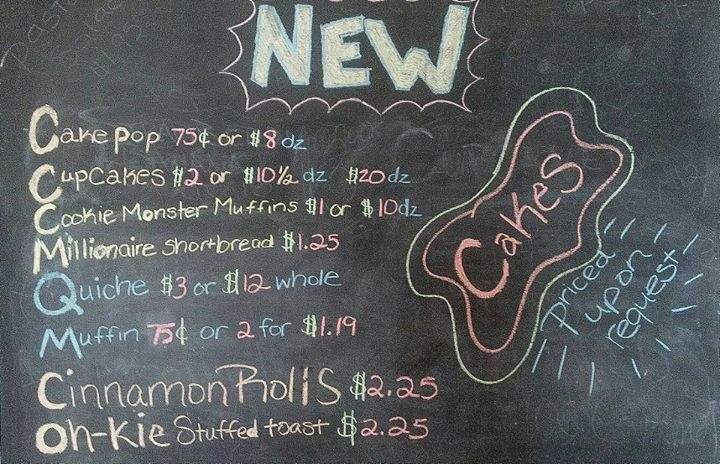 NEW
Cake Pop 75¢ or $8 dz
Cupcakes $2 or $10 ½ dz $20 dz
Cookie Monster Muffins $1 or $10 dz
Millionaire Shortbread $1.25
Quiche $3 or $12 whole
Muffin 75¢ or 2 for $1.19
Cinnamon Rolls $2.25
Oh-Kie Stuffed toast $2.25
Cakes
Priced
upon
request